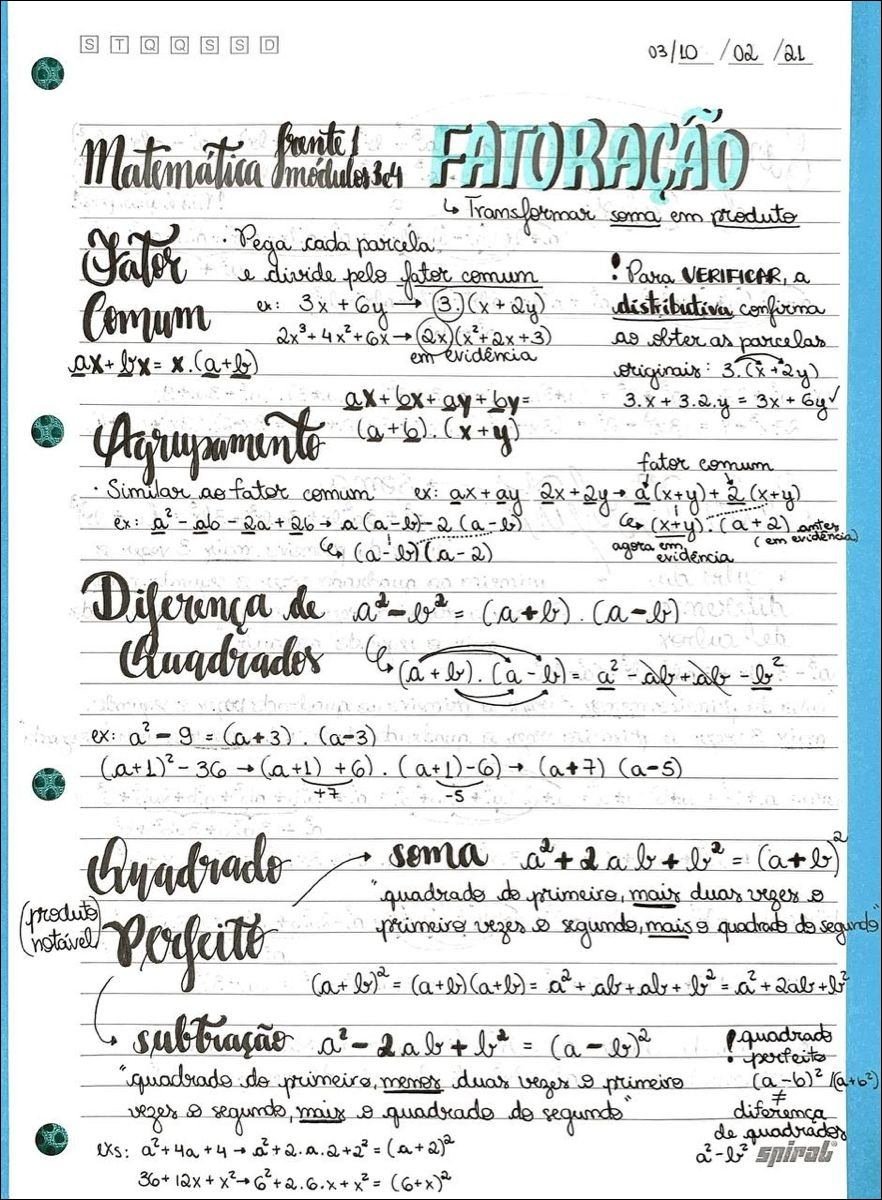 S T Q Q S S D
03/10 / 02 / 21
Matemática frente 1 módulos 3e4 FATORAÇÃO
↳ Transformar soma em produto
Fator Comum
ax + bx = x.(a+b)
· Pega cada parcela
e divide pelo fator comum
ex: 3x + 6y → 3.(x + 2y)
2x³ + 4x² + 6x → (2x)(x² + 2x + 3)
em evidência
! Para VERIFICAR, a
distributiva confirma
ao obter as parcelas
originais: 3.(x + 2y)
3.x + 3.2.y = 3x + 6y ✓
Agrupamento
ax + bx + ay + by =
(a + b).(x + y)
· Similar ao fator comum ex: ax + ay 2x + 2y → a(x+y) + 2(x+y)
fator comum
↳ (x+y).(a+2) antes (em evidência)
agora em evidência
ex: a² - ab - 2a + 2b → a(a-b) - 2(a-b)
↳ (a-b)(a-2)
Diferença de Quadrados
a² - b² = (a + b).(a - b)
↳ (a + b).(a - b) = a² - ab + ab - b²
ex: a² - 9 = (a+3).(a-3)
(a+1)² - 36 → (a+1) + 6).(a+1) - 6) → (a+7) (a-5)
+7 -5
Quadrado Perfeito
(produto notável)
→ soma a² + 2ab + b² = (a+b)²
"quadrado do primeiro, mais duas vezes o
primeiro vezes o segundo, mais o quadrado do segundo"
(a+b)² = (a+b)(a+b) = a² + ab + ab + b² = a² + 2ab + b²
→ subtração a² - 2ab + b² = (a - b)²
"quadrado do primeiro, menos duas vezes o primeiro
vezes o segundo, mais o quadrado do segundo"
! quadrado
perfeito
(a-b)² / (a+b²)
≠
diferença
de quadrados
a² - b²
exs: a² + 4a + 4 → a² + 2.a.2 + 2² = (a+2)²
36 + 12x + x² → 6² + 2.6.x + x² = (6+x)²
spiral®